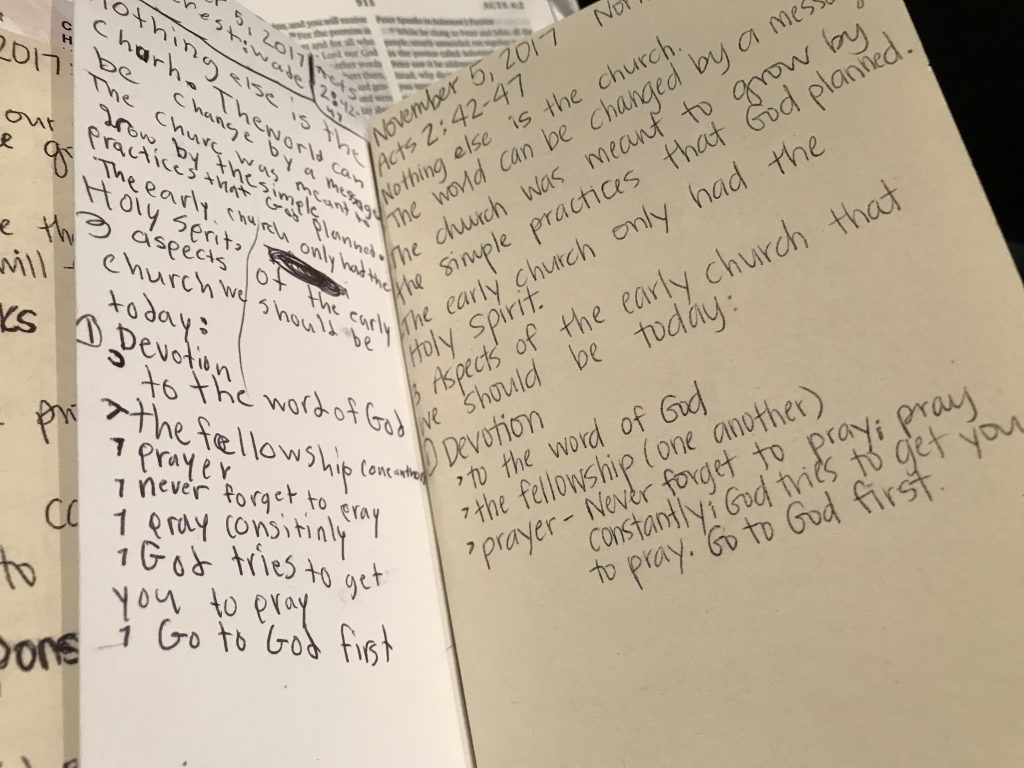 2017:
our
the
will
ks
pr
co
to
5, 2017
Acts
2:42-
47
nothing else is the
charh. The world can
be change by a message
The churc was meant to
grow by the simple
practices that God planned.
The early church only had the
Holy Sprit,
3 aspects of the early
church we should be
today:
① Devotion
> to the word of God
> the fellowship (one
> prayer
> never forget to pray
> pray consitinly
> God tries to get
you to pray
> Go to God first
November 5, 2017
Acts 2:42-47
Nothing else is the church.
The world can be changed by a message
The church was meant to grow by
the simple practices that God planned.
The early church only had the
Holy Spirit.
3 Aspects of the early church that
we should be today:
① Devotion
> to the word of God
> the fellowship (one another)
> prayer - Never forget to pray; pray
constantly; God tries to get you
to pray. Go to God first.